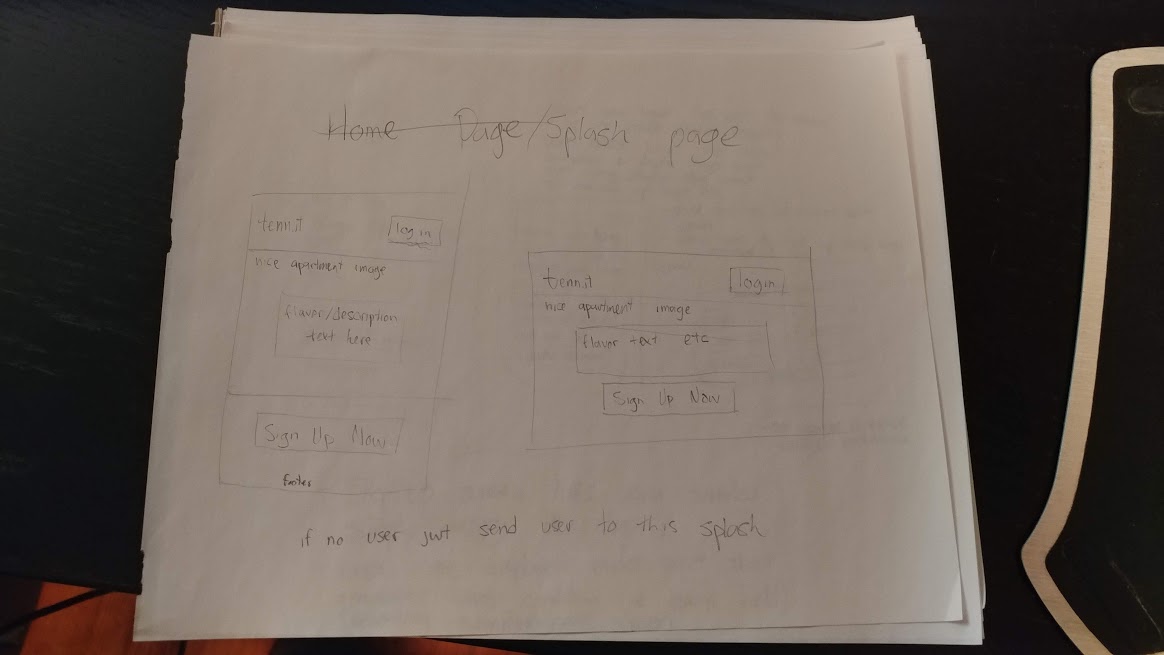 Home Page/Splash page
tennit
log in
nice apartment image
flavor/description
text here
Sign Up Now
footer
tennit
login
nice apartment image
flavor text etc
Sign Up Now
if no user just send user to this splash